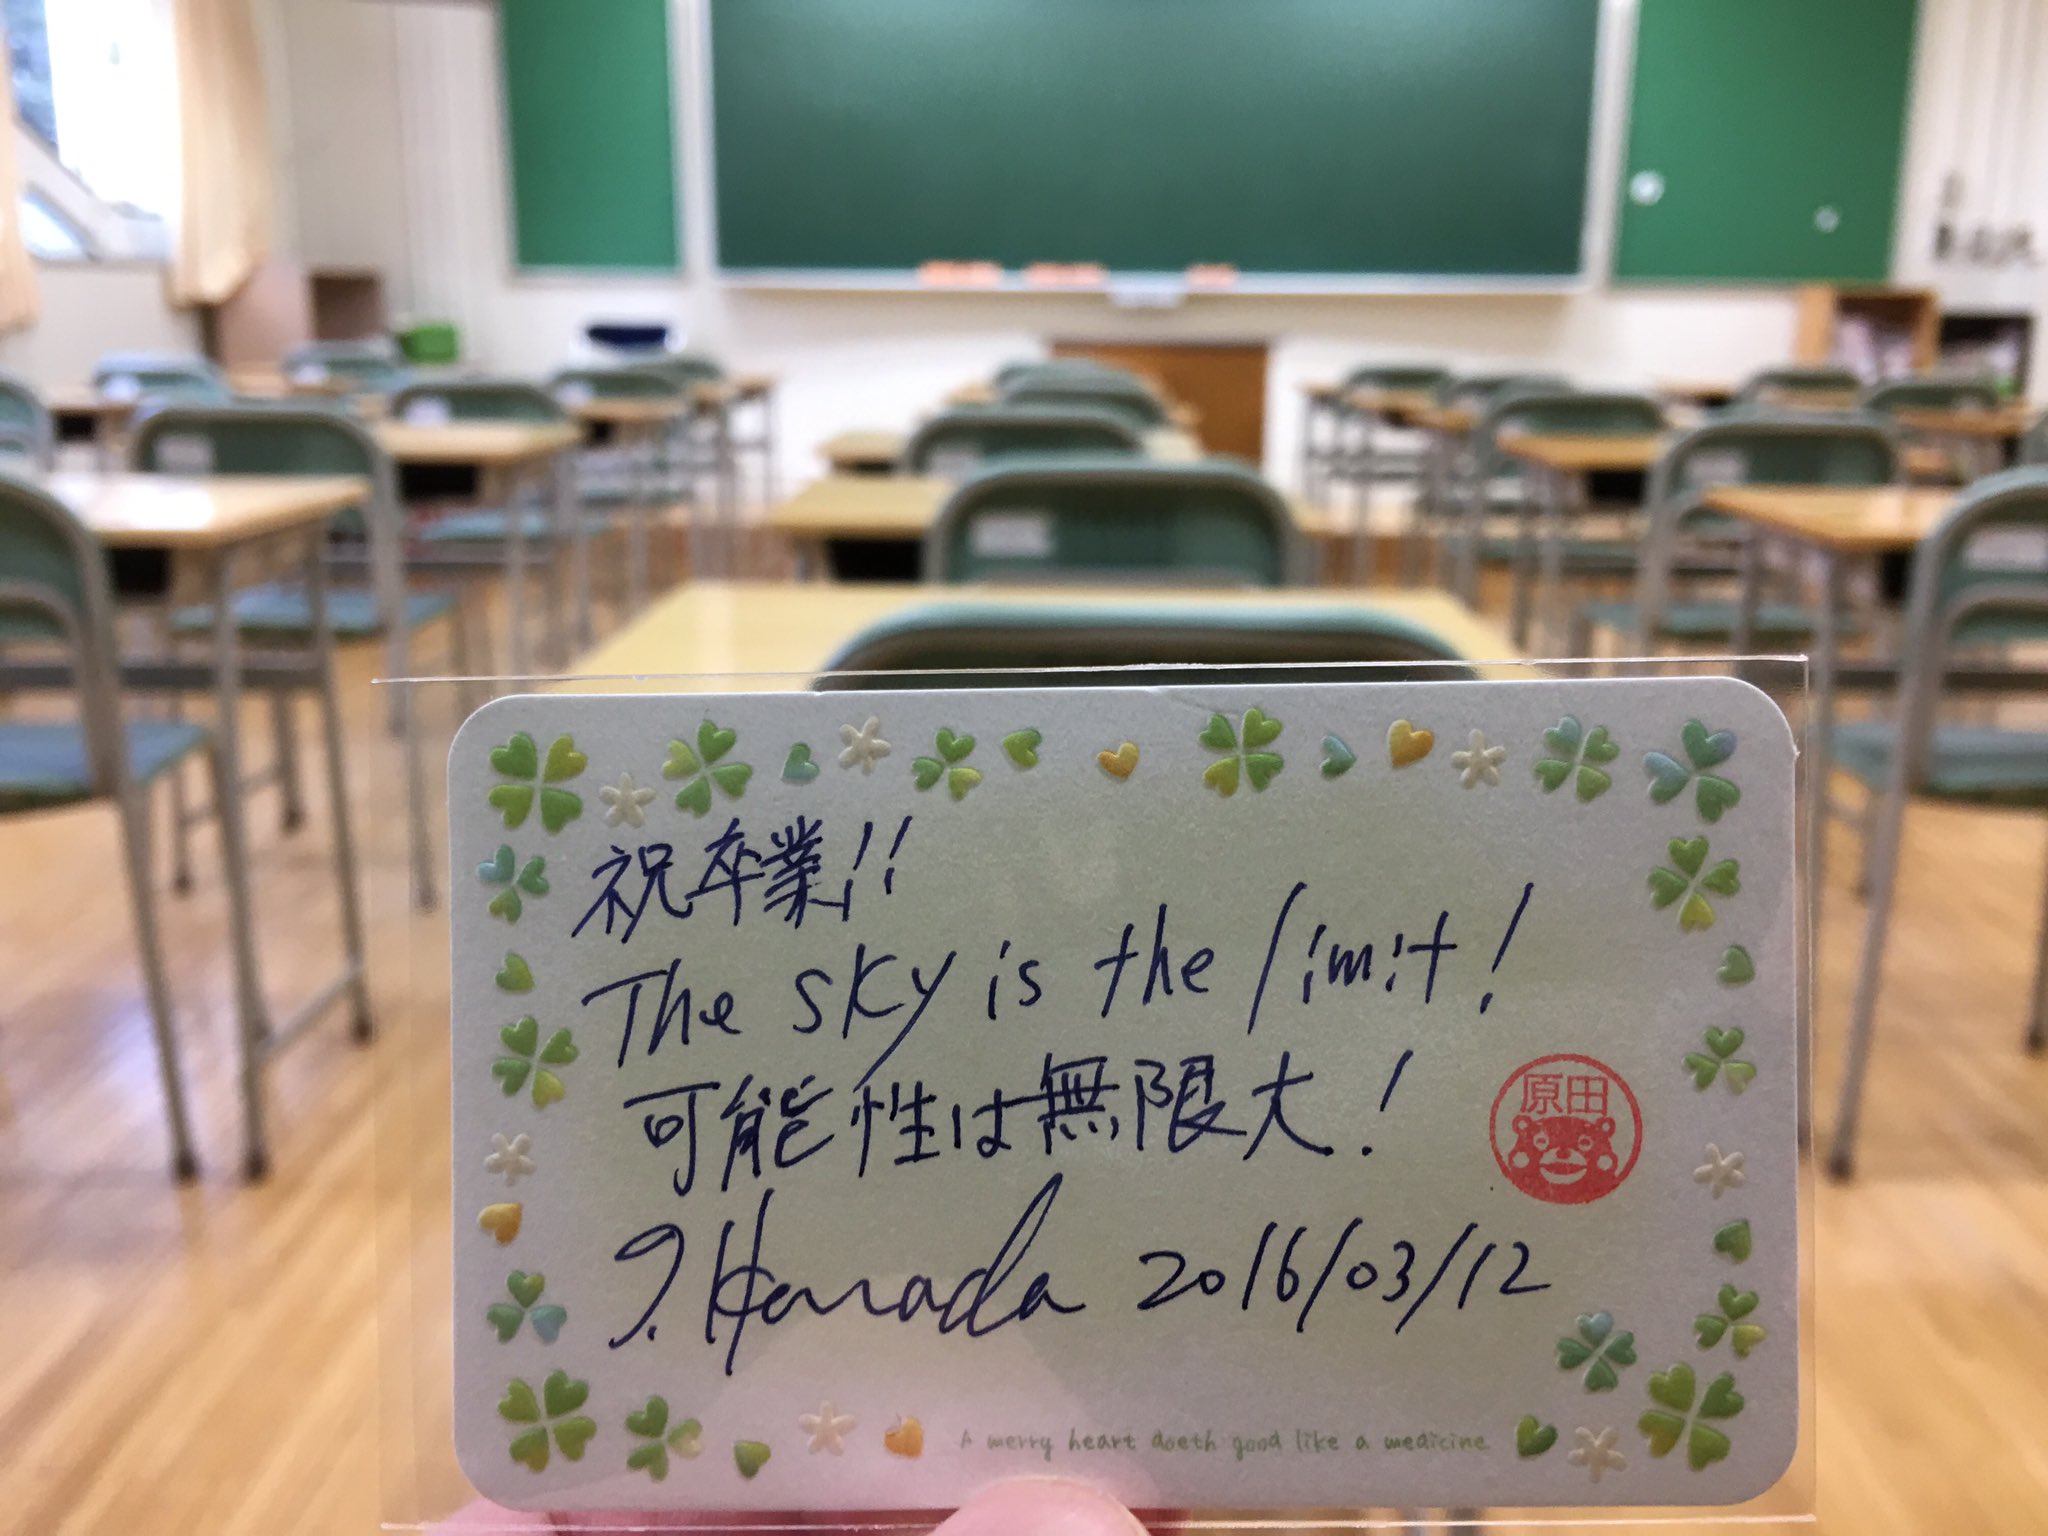 祝卒業!!
The sky is the limit!
可能性は無限大!
原田
J. Harada 2016/03/12
A merry heart doeth good like a medicine